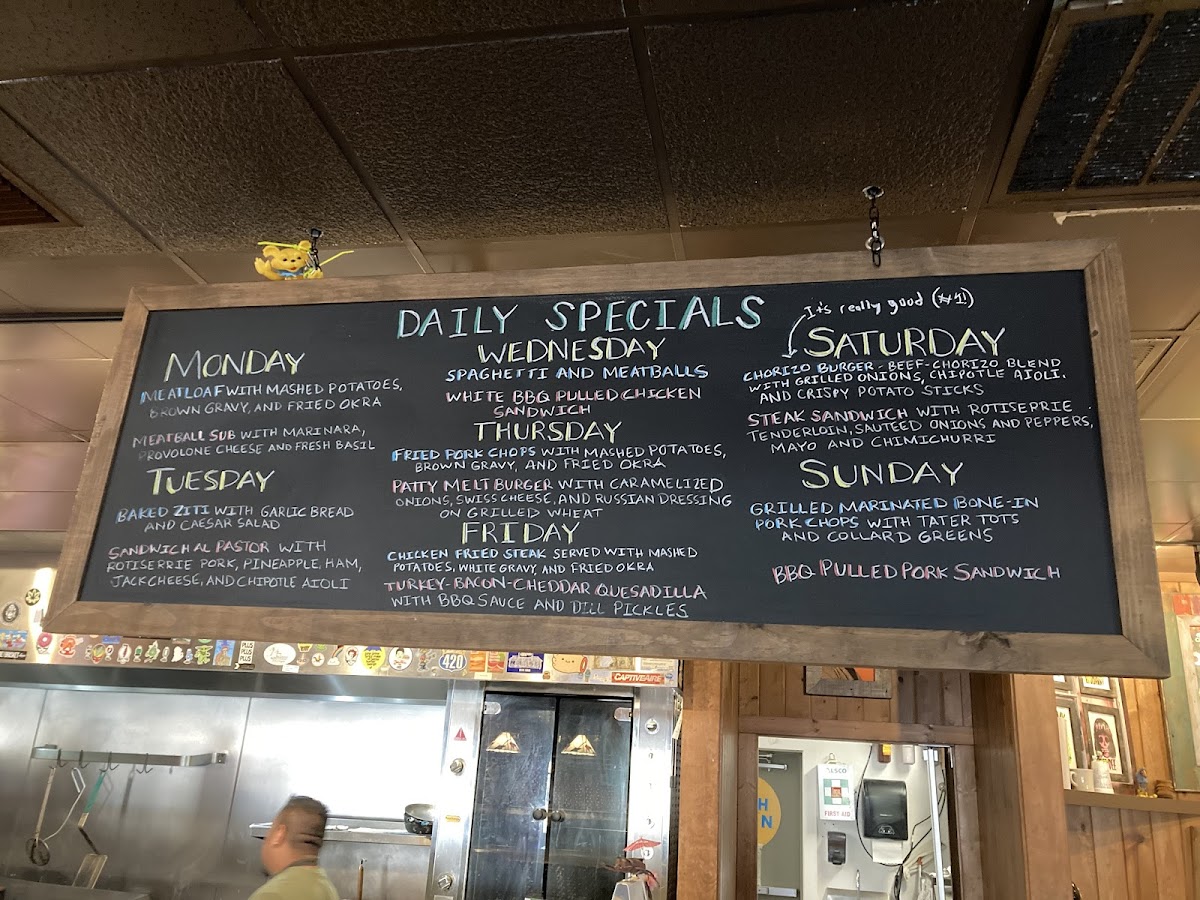 DAILY SPECIALS
MONDAY
MEATLOAF WITH MASHED POTATOES,
BROWN GRAVY, AND FRIED OKRA
MEATBALL SUB WITH MARINARA,
PROVOLONE CHEESE AND FRESH BASIL
TUESDAY
BAKED ZITI WITH GARLIC BREAD
AND CAESAR SALAD
SANDWICH AL PASTOR WITH
ROTISERRIE PORK, PINEAPPLE, HAM,
JACK CHEESE, AND CHIPOTLE AIOLI
WEDNESDAY
SPAGHETTI AND MEATBALLS
WHITE BBQ PULLED CHICKEN
SANDWICH
THURSDAY
FRIED PORK CHOPS WITH MASHED POTATOES,
BROWN GRAVY, AND FRIED OKRA
PATTY MELT BURGER WITH CARAMELIZED
ONIONS, SWISS CHEESE, AND RUSSIAN DRESSING
ON GRILLED WHEAT
FRIDAY
CHICKEN FRIED STEAK SERVED WITH MASHED
POTATOES, WHITE GRAVY, AND FRIED OKRA
TURKEY-BACON-CHEDDAR QUESADILLA
WITH BBQ SAUCE AND DILL PICKLES
It's really good (#1!)
SATURDAY
CHORIZO BURGER - BEEF-CHORIZO BLEND
WITH GRILLED ONIONS, CHIPOTLE AIOLI.
AND CRISPY POTATO STICKS
STEAK SANDWICH WITH ROTISEPRIE
TENDERLOIN, SAUTEED ONIONS AND PEPPERS,
MAYO AND CHIMICHURRI
SUNDAY
GRILLED MARINATED BONE-IN
PORK CHOPS WITH TATER TOTS
AND COLLARD GREENS
BBQ PULLED PORK SANDWICH
PLUS
PLUS
PLUS
420
CAPTIVEAIRE
FIRST AID